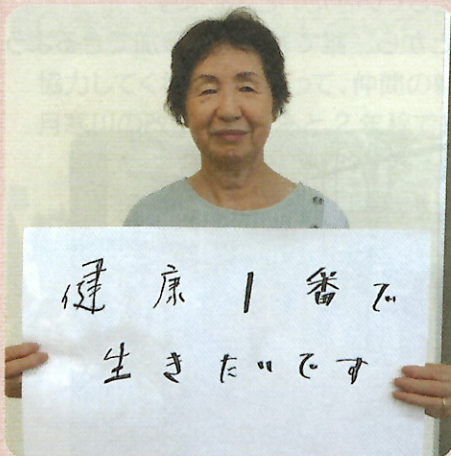 健康1番で
生きたいです